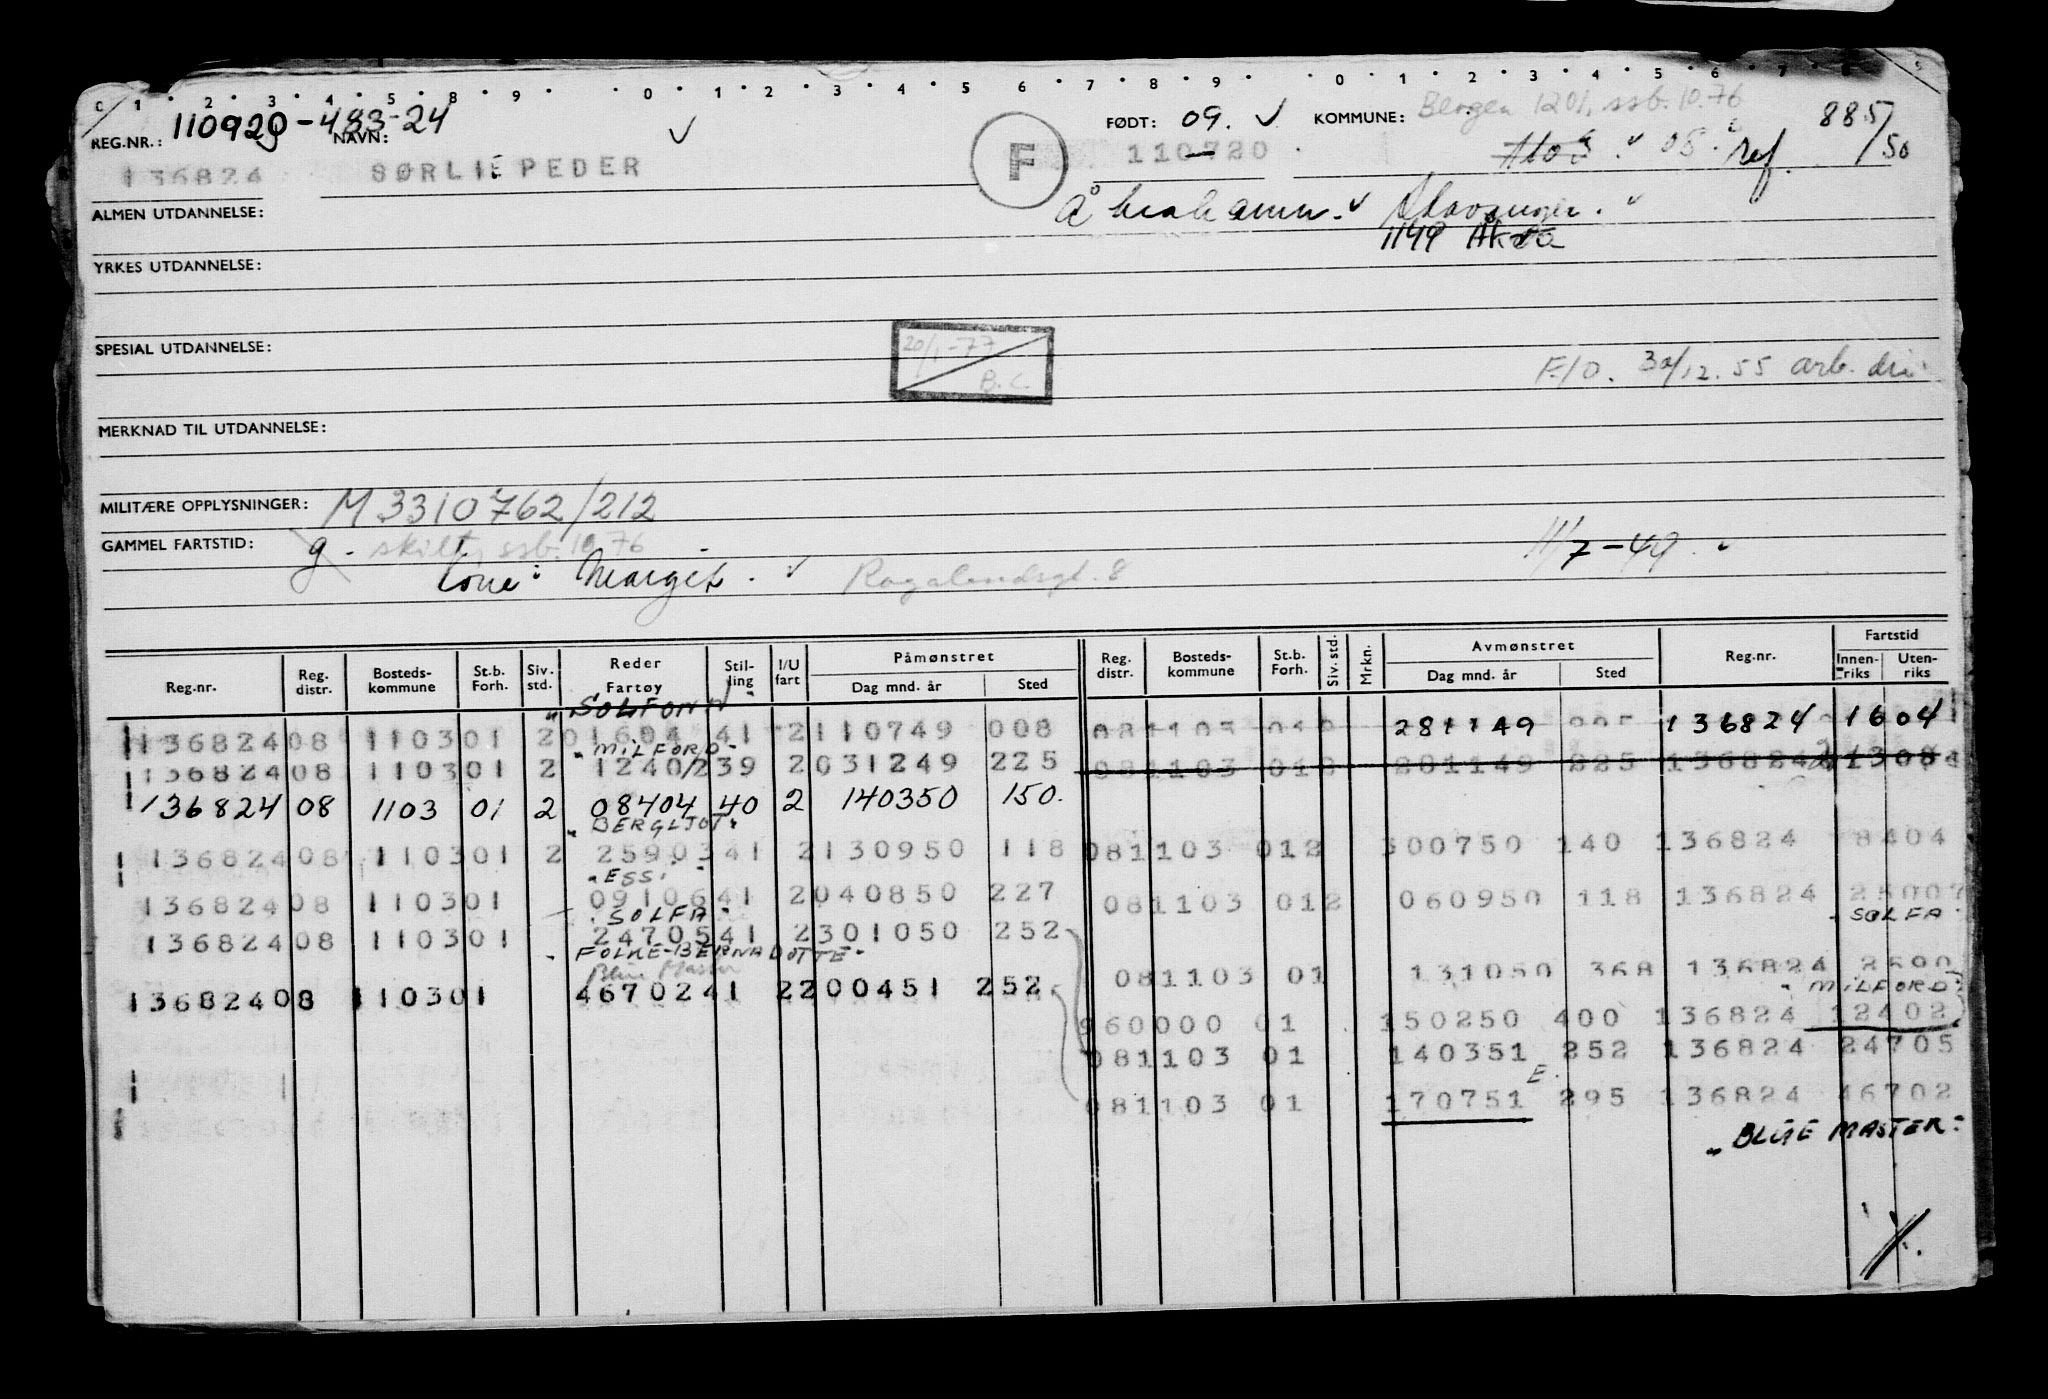 0 1 2 3 4 5 8 9 0 1 2 3 4 5 6 7 8 9 0 1 2 3 4 5 6 7 9
REG.NR.: 110920-483-24 NAVN: FØDT: 09. KOMMUNE: Bergen 1201, ssb. 10.76 885/50
136824 SØRLIE PEDER F 110720 08. Ref.
ALMEN UTDANNELSE: Åbrahamm. Stavanger.
1149
YRKES UTDANNELSE:
SPESIAL UTDANNELSE: 20/1-77 B.C. F.I.O. 30/12.55 arb. dir.
MERKNAD TIL UTDANNELSE:
MILITÆRE OPPLYSNINGER: M 3310762/212
GAMMEL FARTSTID: g. skilt, ssb. 10.76 11/7-49
Kone: Marget. Rogalandsgt. 8
Reg.nr. Reg. distr. Bosteds-kommune St.b. Forh. Siv. std. Reder Fartøy Stil-ling I/U fart Påmønstret Dag mnd. år Sted Reg. distr. Bosteds-kommune St.b. Forh. Siv. std. Mrkn. Avmønstret Dag mnd. år Sted Reg.nr. Fartstid Innen-riks Uten-riks
"SOLFONN"
136824 08 1103 01 2 01604 41 2 110749 008 081103 012 281149 225 136824 1604
"MILFORD"
136824 08 1103 01 2 12402 39 2 031249 225 081103 012 281149 225 136824
136824 08 1103 01 2 08404 40 2 140350 150.
"BERGLJOT"
136824 08 1103 01 2 25903 41 2 130950 118 081103 012 300750 140 136824 8404
"ESSI"
136824 08 1103 01 09106 41 2 040850 227 081103 012 060950 118 136824
"SOLFA" "SOLFA"
136824 08 1103 01 24705 41 2 301050 252
"FOLKE-BERNADOTTE" 081103 01 131050 368 136824 2590
Blue Master "MILFORD"
136824 08 1103 01 46702 41 2 200451 252 960000 01 150250 400 136824 12402
081103 01 140351 252 136824 24705
E.
081103 01 170751 295 136824 46702
"BLUE MASTER"